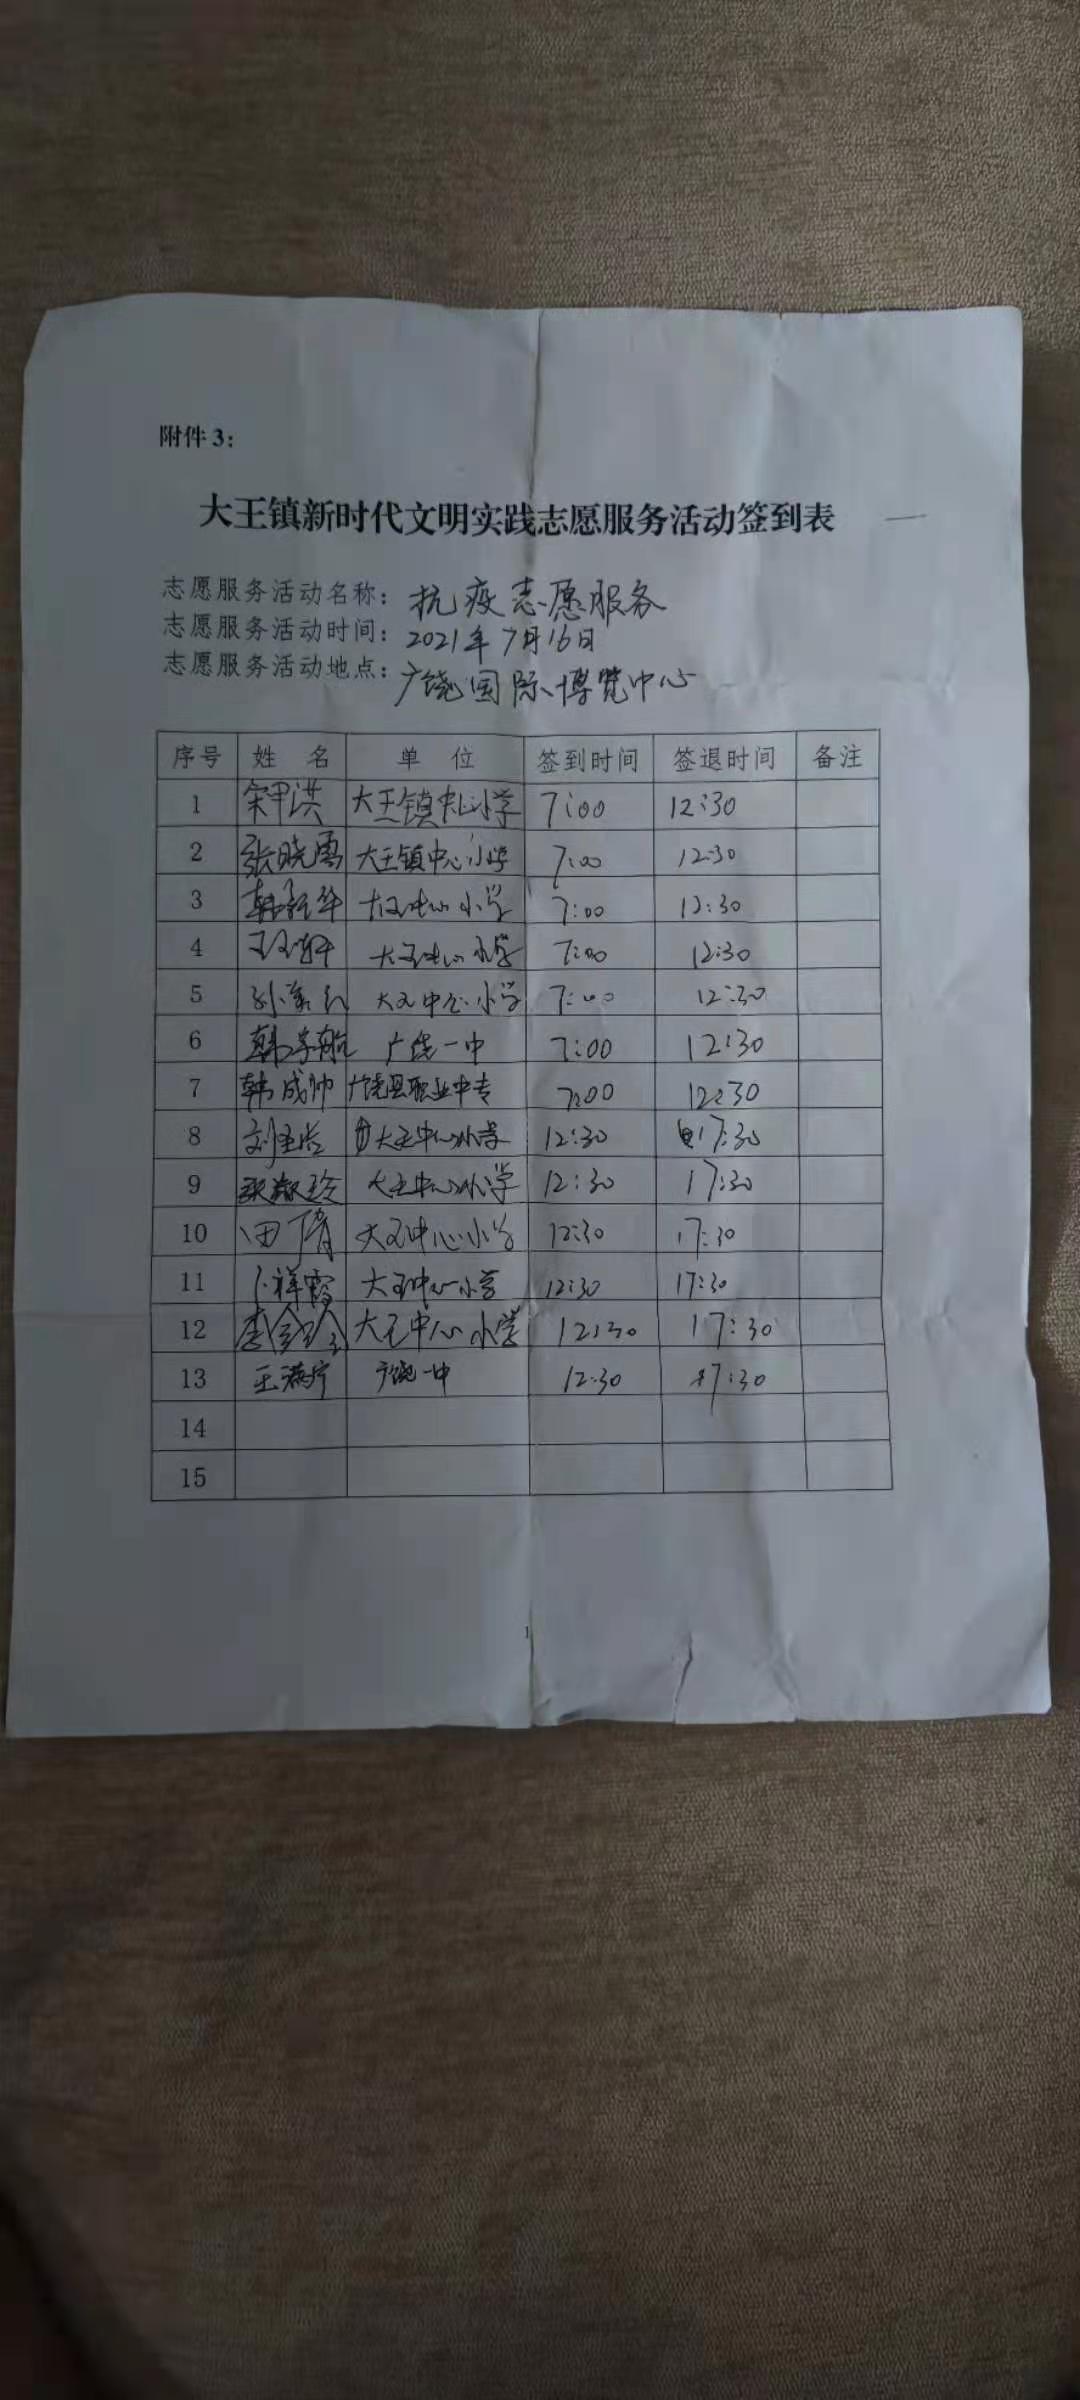 附件3：
大王镇新时代文明实践志愿服务活动签到表
志愿服务活动名称：抗疫志愿服务
志愿服务活动时间：2021年7月16日
志愿服务活动地点：广饶国际博览中心
序号 姓 名 单 位 签到时间 签退时间 备注
1 宋甲洪 大王镇中心小学 7:00 12:30
2 张晓雪 大王镇中心小学 7:00 12:30
3 韩新华 大王中心小学 7:00 12:30
4 大王中心小学 7:00 12:30
5 大王中心小学 7:00 12:30
6 韩宇航 广饶一中 7:00 12:30
7 韩成帅 广饶县职业中专 7:00 12:30
8 大王中心小学 12:30 17:30
9 张淑玲 大王中心小学 12:30 17:30
10 田倩 大王中心小学 12:30 17:30
11 卜祥霞 大王中心小学 12:30 17:30
12 李金玲 大王中心小学 12:30 17:30
13 王满宁 广饶一中 12:30 17:30
14
15
1